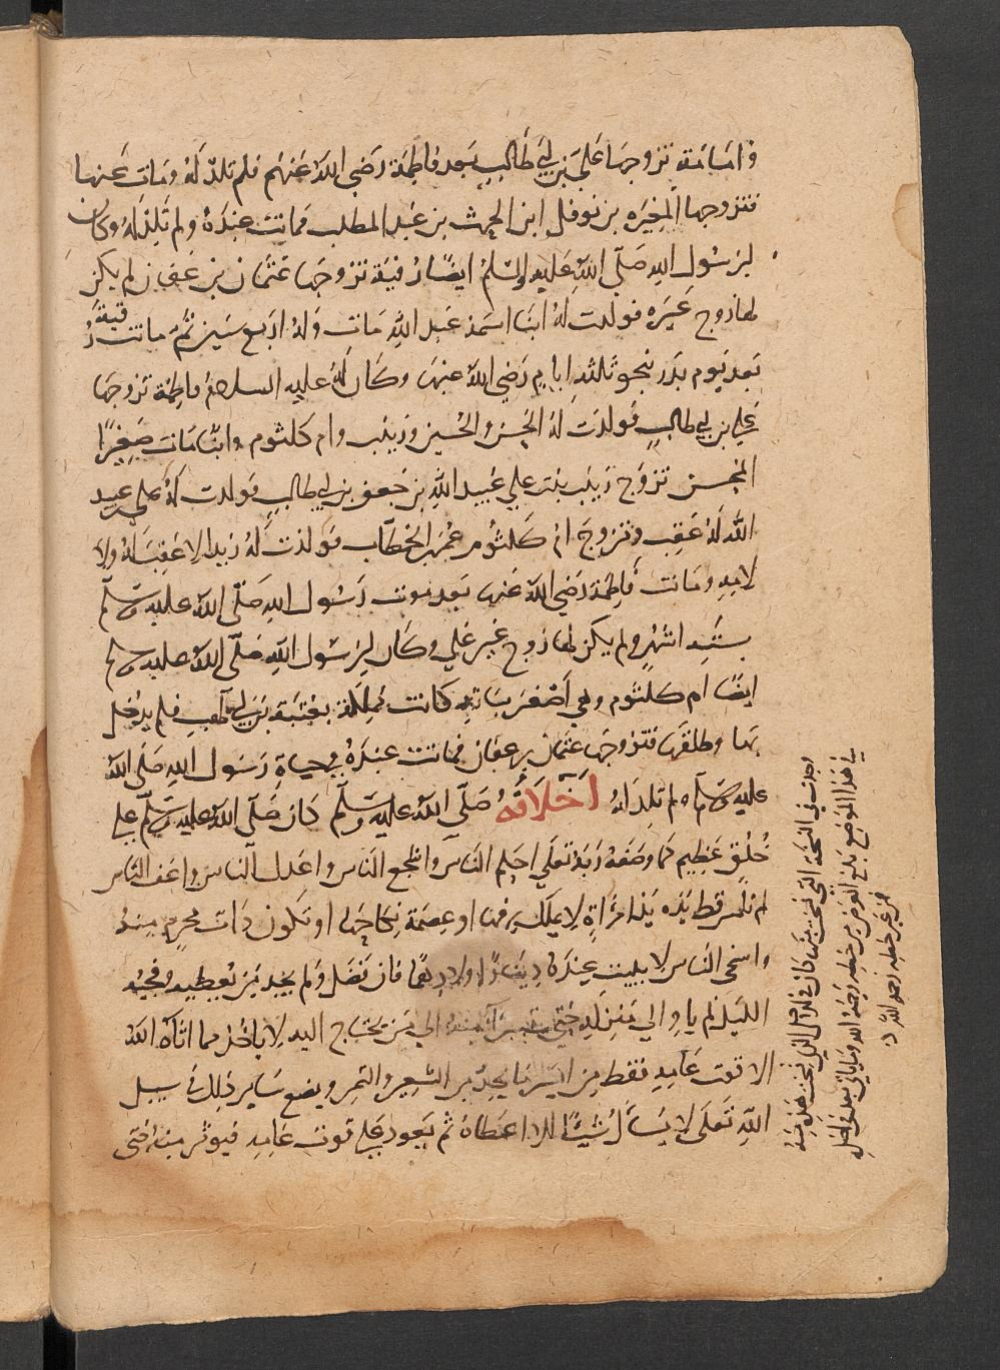 وامامة تزوجها علي بن ابي طالب بعد فاطمة رضي الله عنهم فلم تلد له ومات عنها
فتزوجها المغيره بن نوفل ابن الحرث بن عبد المطلب فماتت عنده ولم تلد له وكان
لرسول الله صلى الله عليه وسلم ايضا رقية تزوجها عثمان بن عفان لم يكن
لها زوج غيره فولدت له ابنا اسمه عبد الله مات وله اربع سنين ثم ماتت رقية
بعد يوم بدر بنحو ثلثه ايام رضي الله عنها وكان له عليه السلام فاطمة تزوجها
علي بن ابي طالب فولدت له الحسن والحسين وزينب وام كلثوم وابنا مات صغيرا
المحسن تزوج زينب بنت علي عبيد الله بن جعفر بن ابي طالب فولدت له علي عبيد
الله له عقب وتزوج ام كلثوم عمر بن الخطاب فولدت له زيدا لا عقب له ولا
لامه وماتت فاطمة رضي الله عنها بعد موت رسول الله صلى الله عليه وسلم
بسته اشهر ولم يكن لها زوج غير علي وكان لرسول الله صلى الله عليه وسلم
ايضا ام كلثوم وهي اصغر بناته كانت مملكة بعتبة بن ابي لهب فلم يدخل
بها وطلقها فتزوجها عثمان بن عفان فماتت عنده في حياة رسول الله صلى الله
عليه وسلم لم تلد له اخلاقه صلى الله عليه وسلم كان صلى الله عليه وسلم علي
خلق عظيم كما وصفه ربه تعلى احلم الناس واشجع الناس واعدل الناس واعف الناس
لم تمس قط يده يد امراة لا يملك رقها او عصمة نكاحها او تكون ذات محرم منه
واسخى الناس لا يبيت عنده دينار ولا درهم فان فضل ولم يجد من يعطيه وفجئه
الليل لم ياو الى منزله حتى يتبرا منه الى من يحتاج اليه لا ياخذ مما اتاه الله
الا قوت عامه فقط من ايسر ما يجد من الشعير والتمر ويضع ساير ذلك في سبيل
الله تعلى لا يسال شيئا الا اعطاه ثم يعود علي قوت عامه فيوثر منه حتى
وجدت في النسخة التي نسخت منها
في هذا الموضع بلغ العرض من خطه رحمه الله
من غير خطه رحمه الله